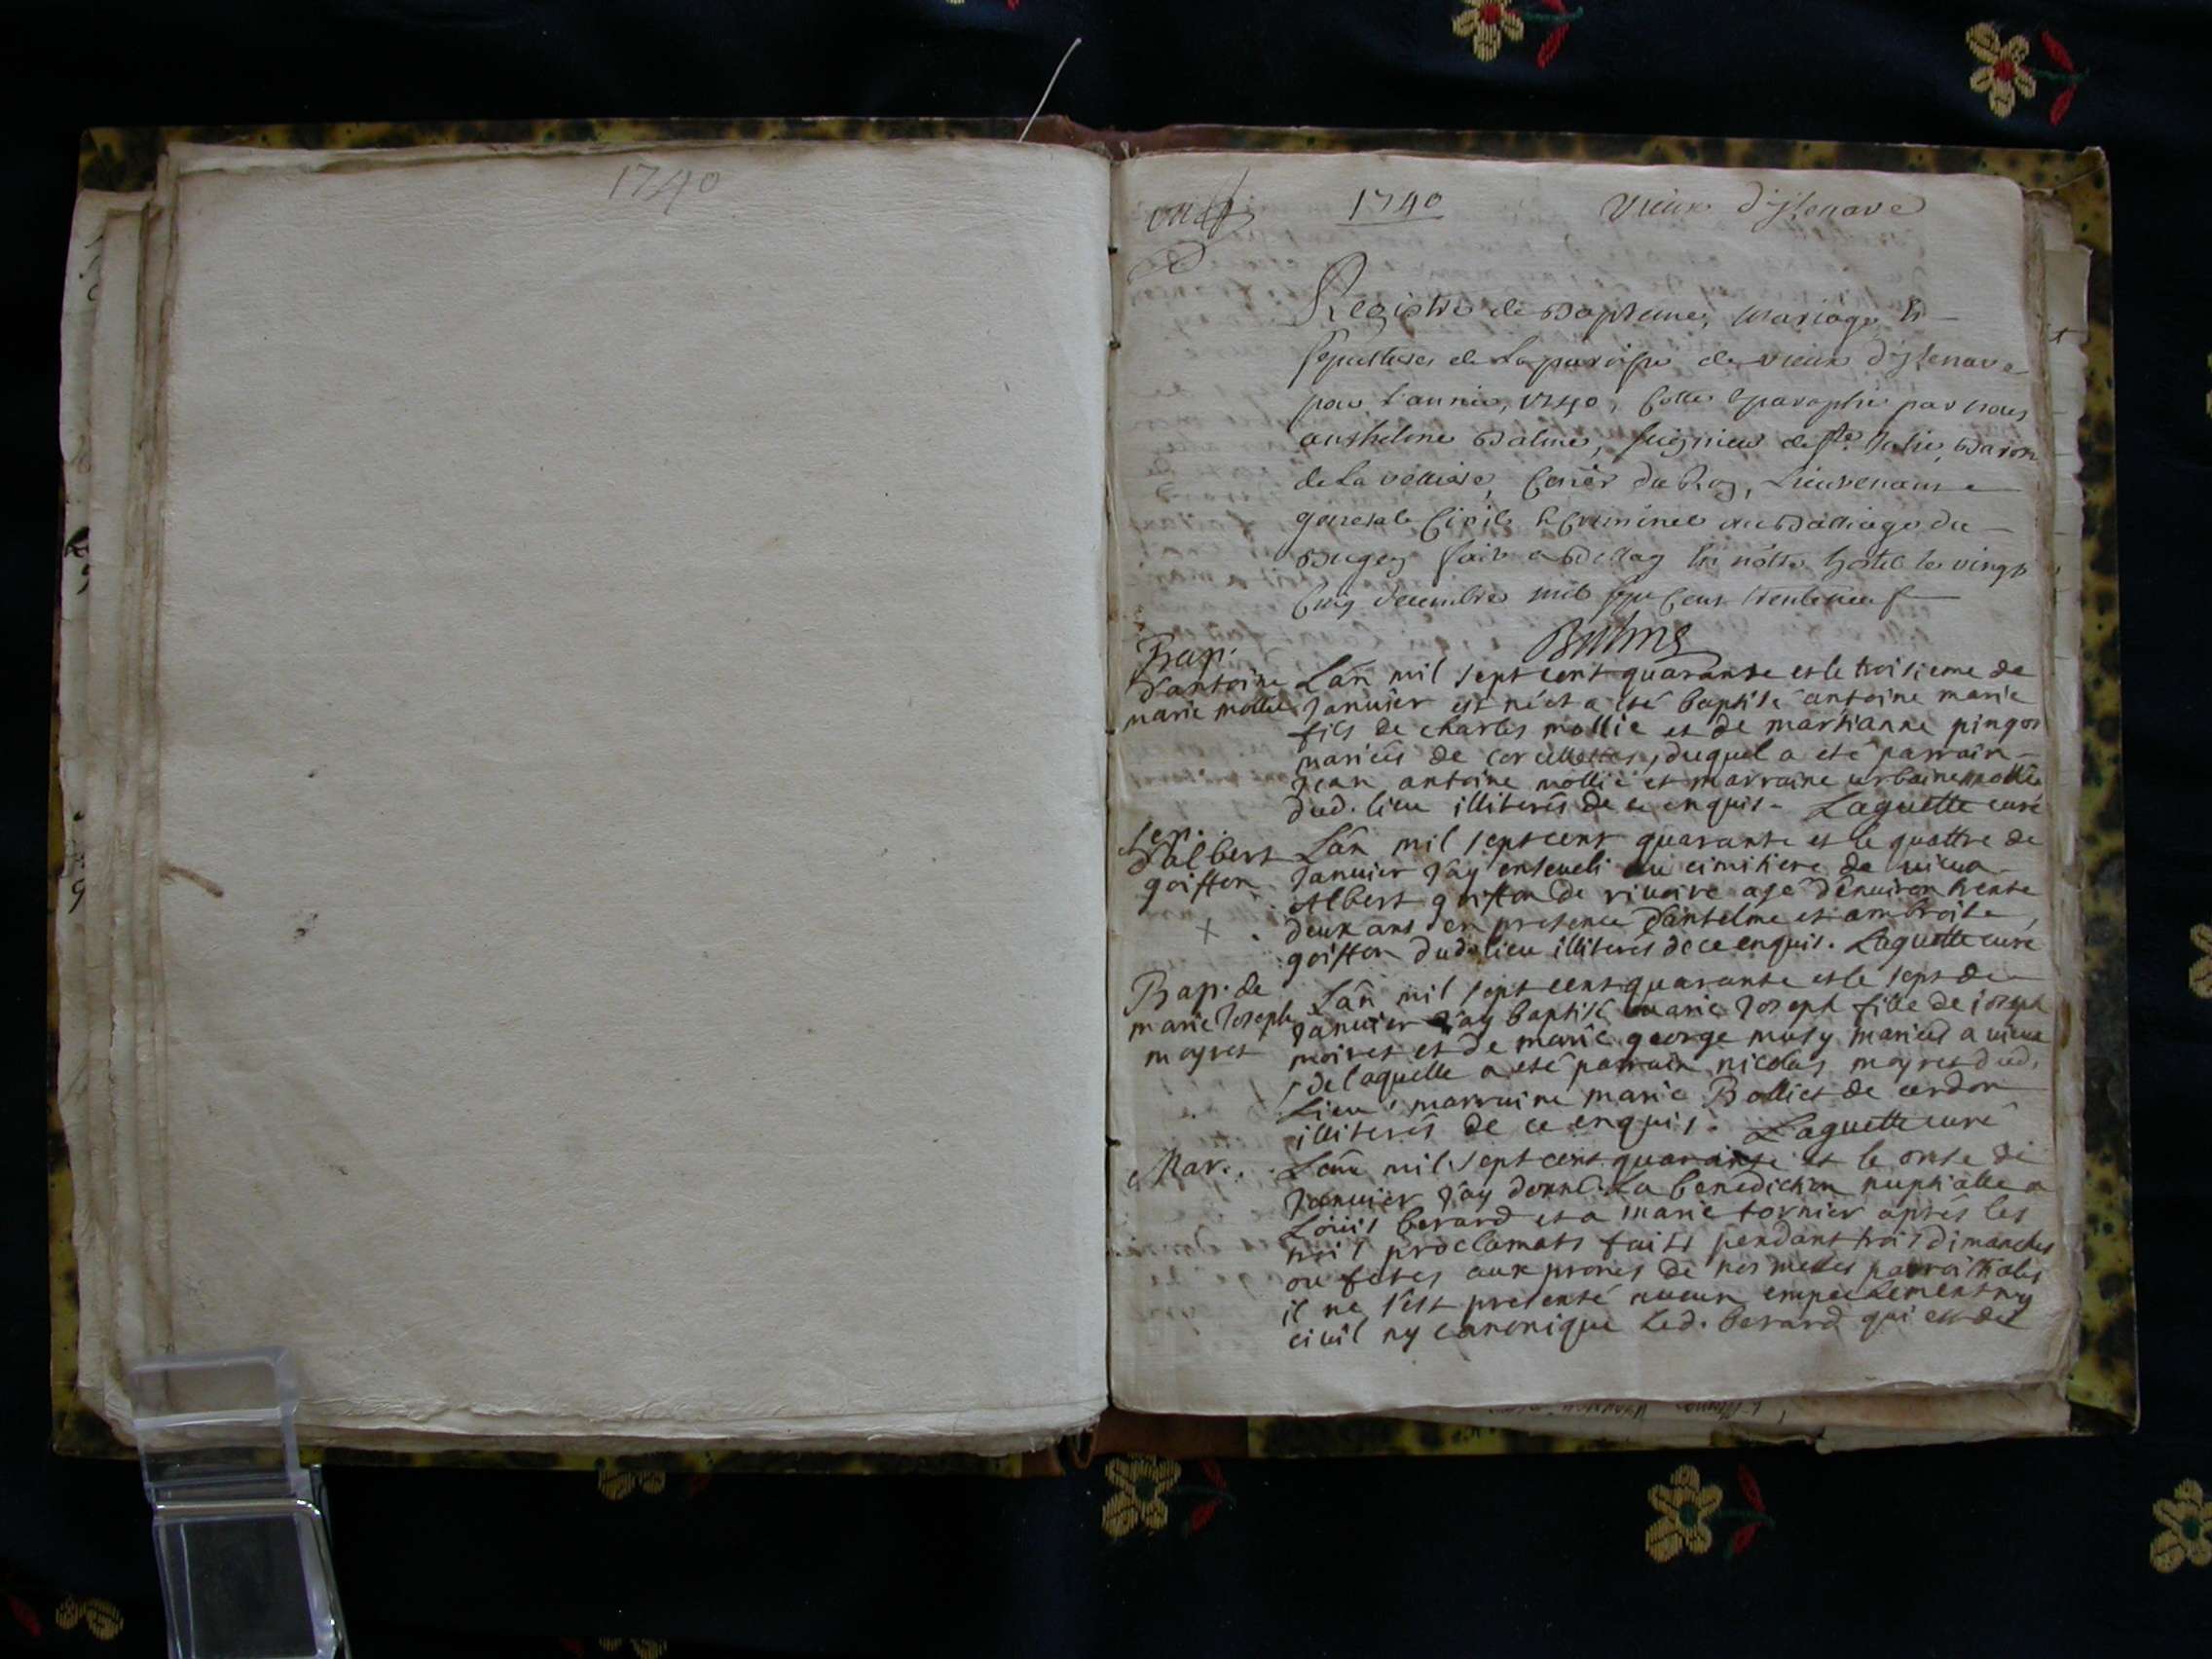 1740
1740
Vieux d'jsenave
Registre de Bapteme, Mariage et
sepultures de La paroisse de vieux d'jsenave
pour L'année, 1740, Cotté & paraphé par nous
anthelme Balme, seigneur de Ste Julie, Baron
de La velliere, Coner du Roy, Lieutenant
general Civil & Criminel au Balliage du
Bugey fait a Bellay En nôtre hostel le vingt
Cinq decembre mil sept Cent trenteneuf
Balme
Bap.
d'antoine
marie mollié
Lan mil sept cent quarante et le troisieme de
Januier est né et a esté baptisé antoine marie
fils de charles mollié et de marianne pingon
mariés de corcellettes, duquel a eté parrain
Jean antoine mollié et marraine urbaine mollié
dud. lieu illiterés de ce enquis. Laguette curé
Sep.
d'albert
goiffon
Lan mil sept cent quarante et le quattre de
Januier J'ay enseueli au cimitiere de uieux
Albert goiffon de riuoire agé d'enuiron trente
deux ans en presence d'antelme et ambroise
goiffon dud. lieu illiterés de ce enquis. Laguette curé
Bap. de
marie Joseph
moyret
Lan mil sept cent quarante et le sept de
Januier J'ay baptisé marie Joseph fille de ioseph
moiret et de marie george musy mariés a uieux
de laquelle a esté parrain nicolas moyret dud.
Lieu, marraine marie Bolliet de cerdon
illiterés de ce enquis. Laguette curé
Mar.
Lan mil sept cent quarante et le onse de
Januier J'ay donné La benediction nuptialle a
Loüis berard et a marie tornier aprés les
trois proclamats faits pendant trois dimanches
ou festes aux prones de nos messes parroissiales
il ne s'est presenté aucun empechement ny
ciuil ny canonique Led. berard qui est de